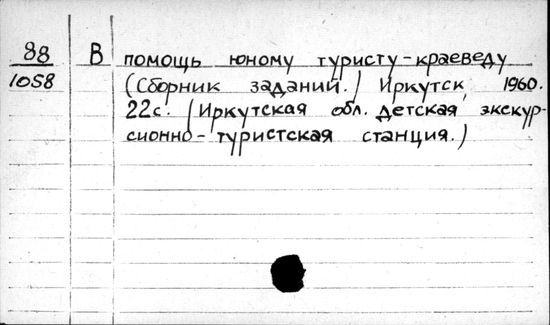 88 В помощь юному туристу-краеведу
1058 (Сборник заданий.) Иркутск, 1960.
22с. (Иркутская обл. детская экскур-
сионно-туристская станция.)